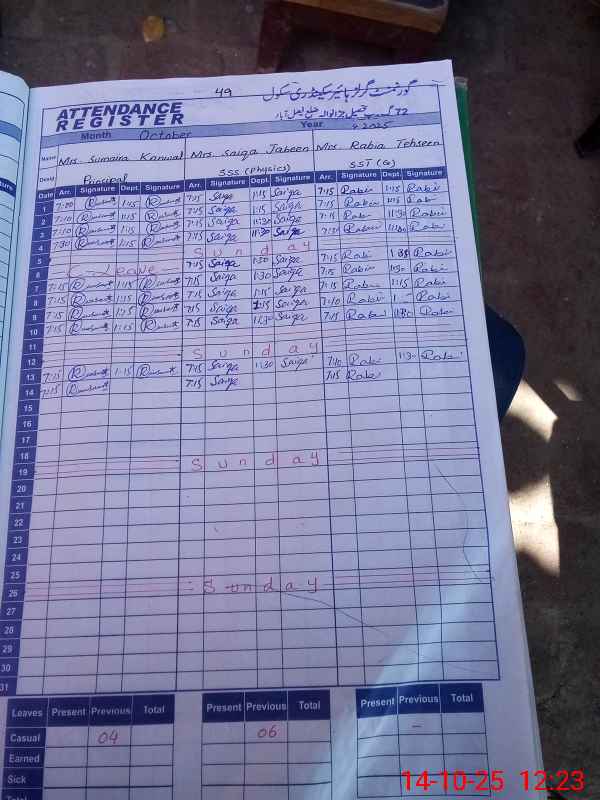 49 گورنمنٹ گرلز ہائیر سیکنڈری سکول
ATTENDANCE
REGISTER
72 گ ب تحصیل جڑانوالہ ضلع فیصل آباد
Month October Year 2025
Name Mrs. Sumaira Kanwal Mrs. Saiqa Jabeen Mrs. Rabia Tehseen
Desig Principal SSS (Physics) SST (G)
Date Arr. Signature Dept. Signature Arr. Signature Dept. Signature Arr. Signature Dept. Signature
1 7:15 Saiqa 1:15 Saiqa 7:15 Rabia 1:15 Rabia
2 7:10 1:15 7:15 Saiqa 1:15 Saiqa 7:15 Rabia Rabia
3 7:10 1:15 7:15 Saiqa 11:30 Saiqa 7:15 Rabia 11:30 Rabia
4 1:15 7:15 Saiqa 11:30 Saiqa Rabia Rabia
5 Sunday
6 C-Leave 7:15 Saiqa 1:30 Saiqa 7:15 Rabia Rabia
7 7:15 1:15 7:15 Saiqa 1:30 Saiqa 7:15 Rabia Rabia
8 7:15 1:15 7:15 Saiqa 1:15 Saiqa 7:15 Rabia 1:15 Rabia
9 7:15 1:15 7:15 Saiqa 1:15 Saiqa 7:10 Rabia Rabia
10 7:15 1:15 7:15 Saiqa 11:30 Saiqa 7:15 Rabia 11:30 Rabia
11
12 Sunday
13 7:15 1:15 7:15 Saiqa 11:30 Saiqa 7:10 Rabia 11:30 Rabia
14 7:15 7:15 Saiqa 7:15 Rabia
15
16
17
18
19 Sunday
20
21
22
23
24
25
26 Sunday
27
28
29
30
31
Leaves Present Previous Total Present Previous Total Present Previous Total
Casual 04 06 -
Earned
Sick
Total
14-10-25 12:23